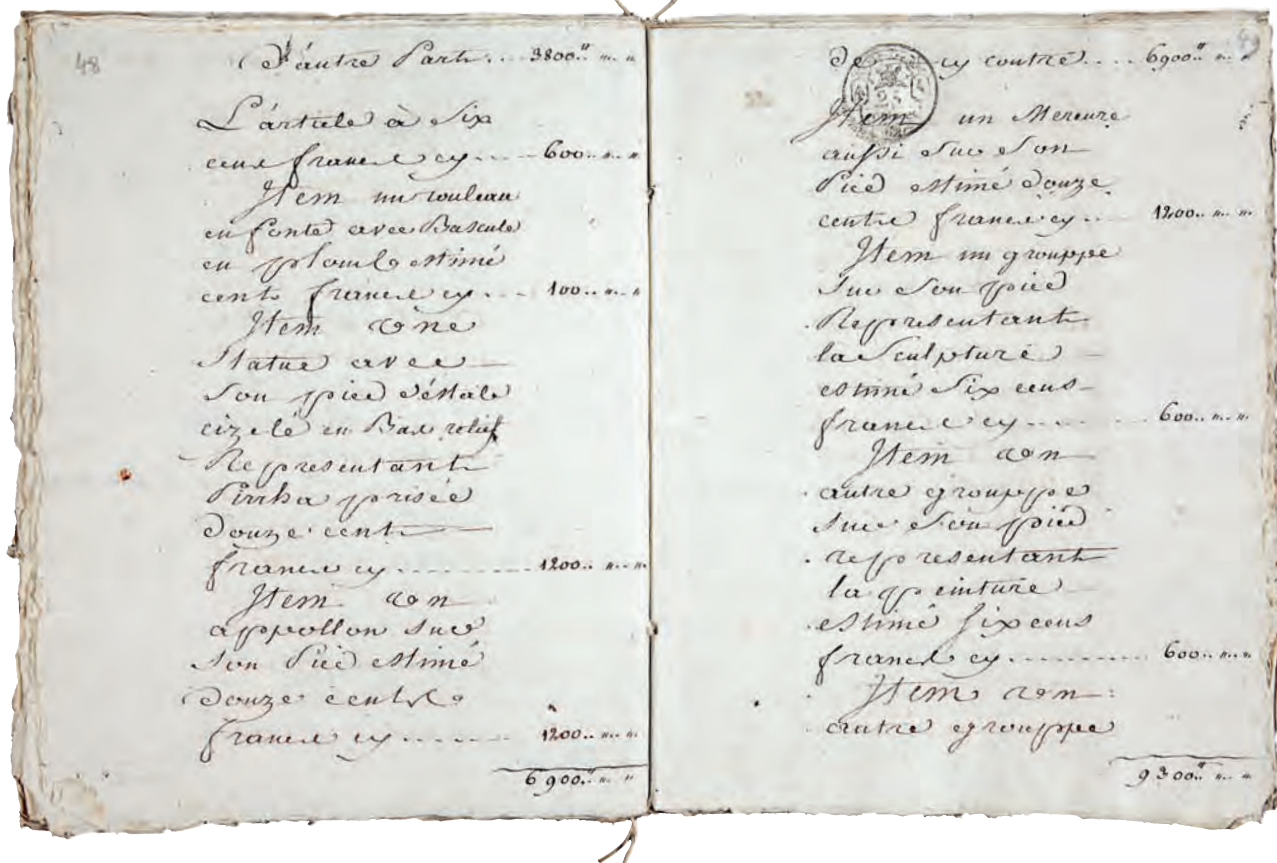 48
D'autre Part .... 3800.." "." "
L'article à Six
cens francs cy .... 600.." "
Item un rouleau
en fonte avec Bascule
en plomb estimé
cents francs cy ... 100.." "
Item une
Statue avec
Son pied d'éstale
cizelé en Bas relief
Representant
Pirrha prisée
douze cent
francs cy .......... 1200.." "
Item un
appollon sur
son Pied estimé
douze cents
francs cy ......... 1200.." "
6900.." "." "
49
De cy contre .... 6900.." "." "
25
Item un Mercure
aussi sur son
Pied estimé douze
cents francs cy .... 1200.." "
Item un grouppe
sur son pied
Representant
la Sculpture
estimé Six cens
francs cy ........ 600.." "
Item un
autre grouppe
sur son pied
representant
la peinture
estimé six cens
francs cy ............ 600.." "
Item un
autre grouppe
9300.." "." "